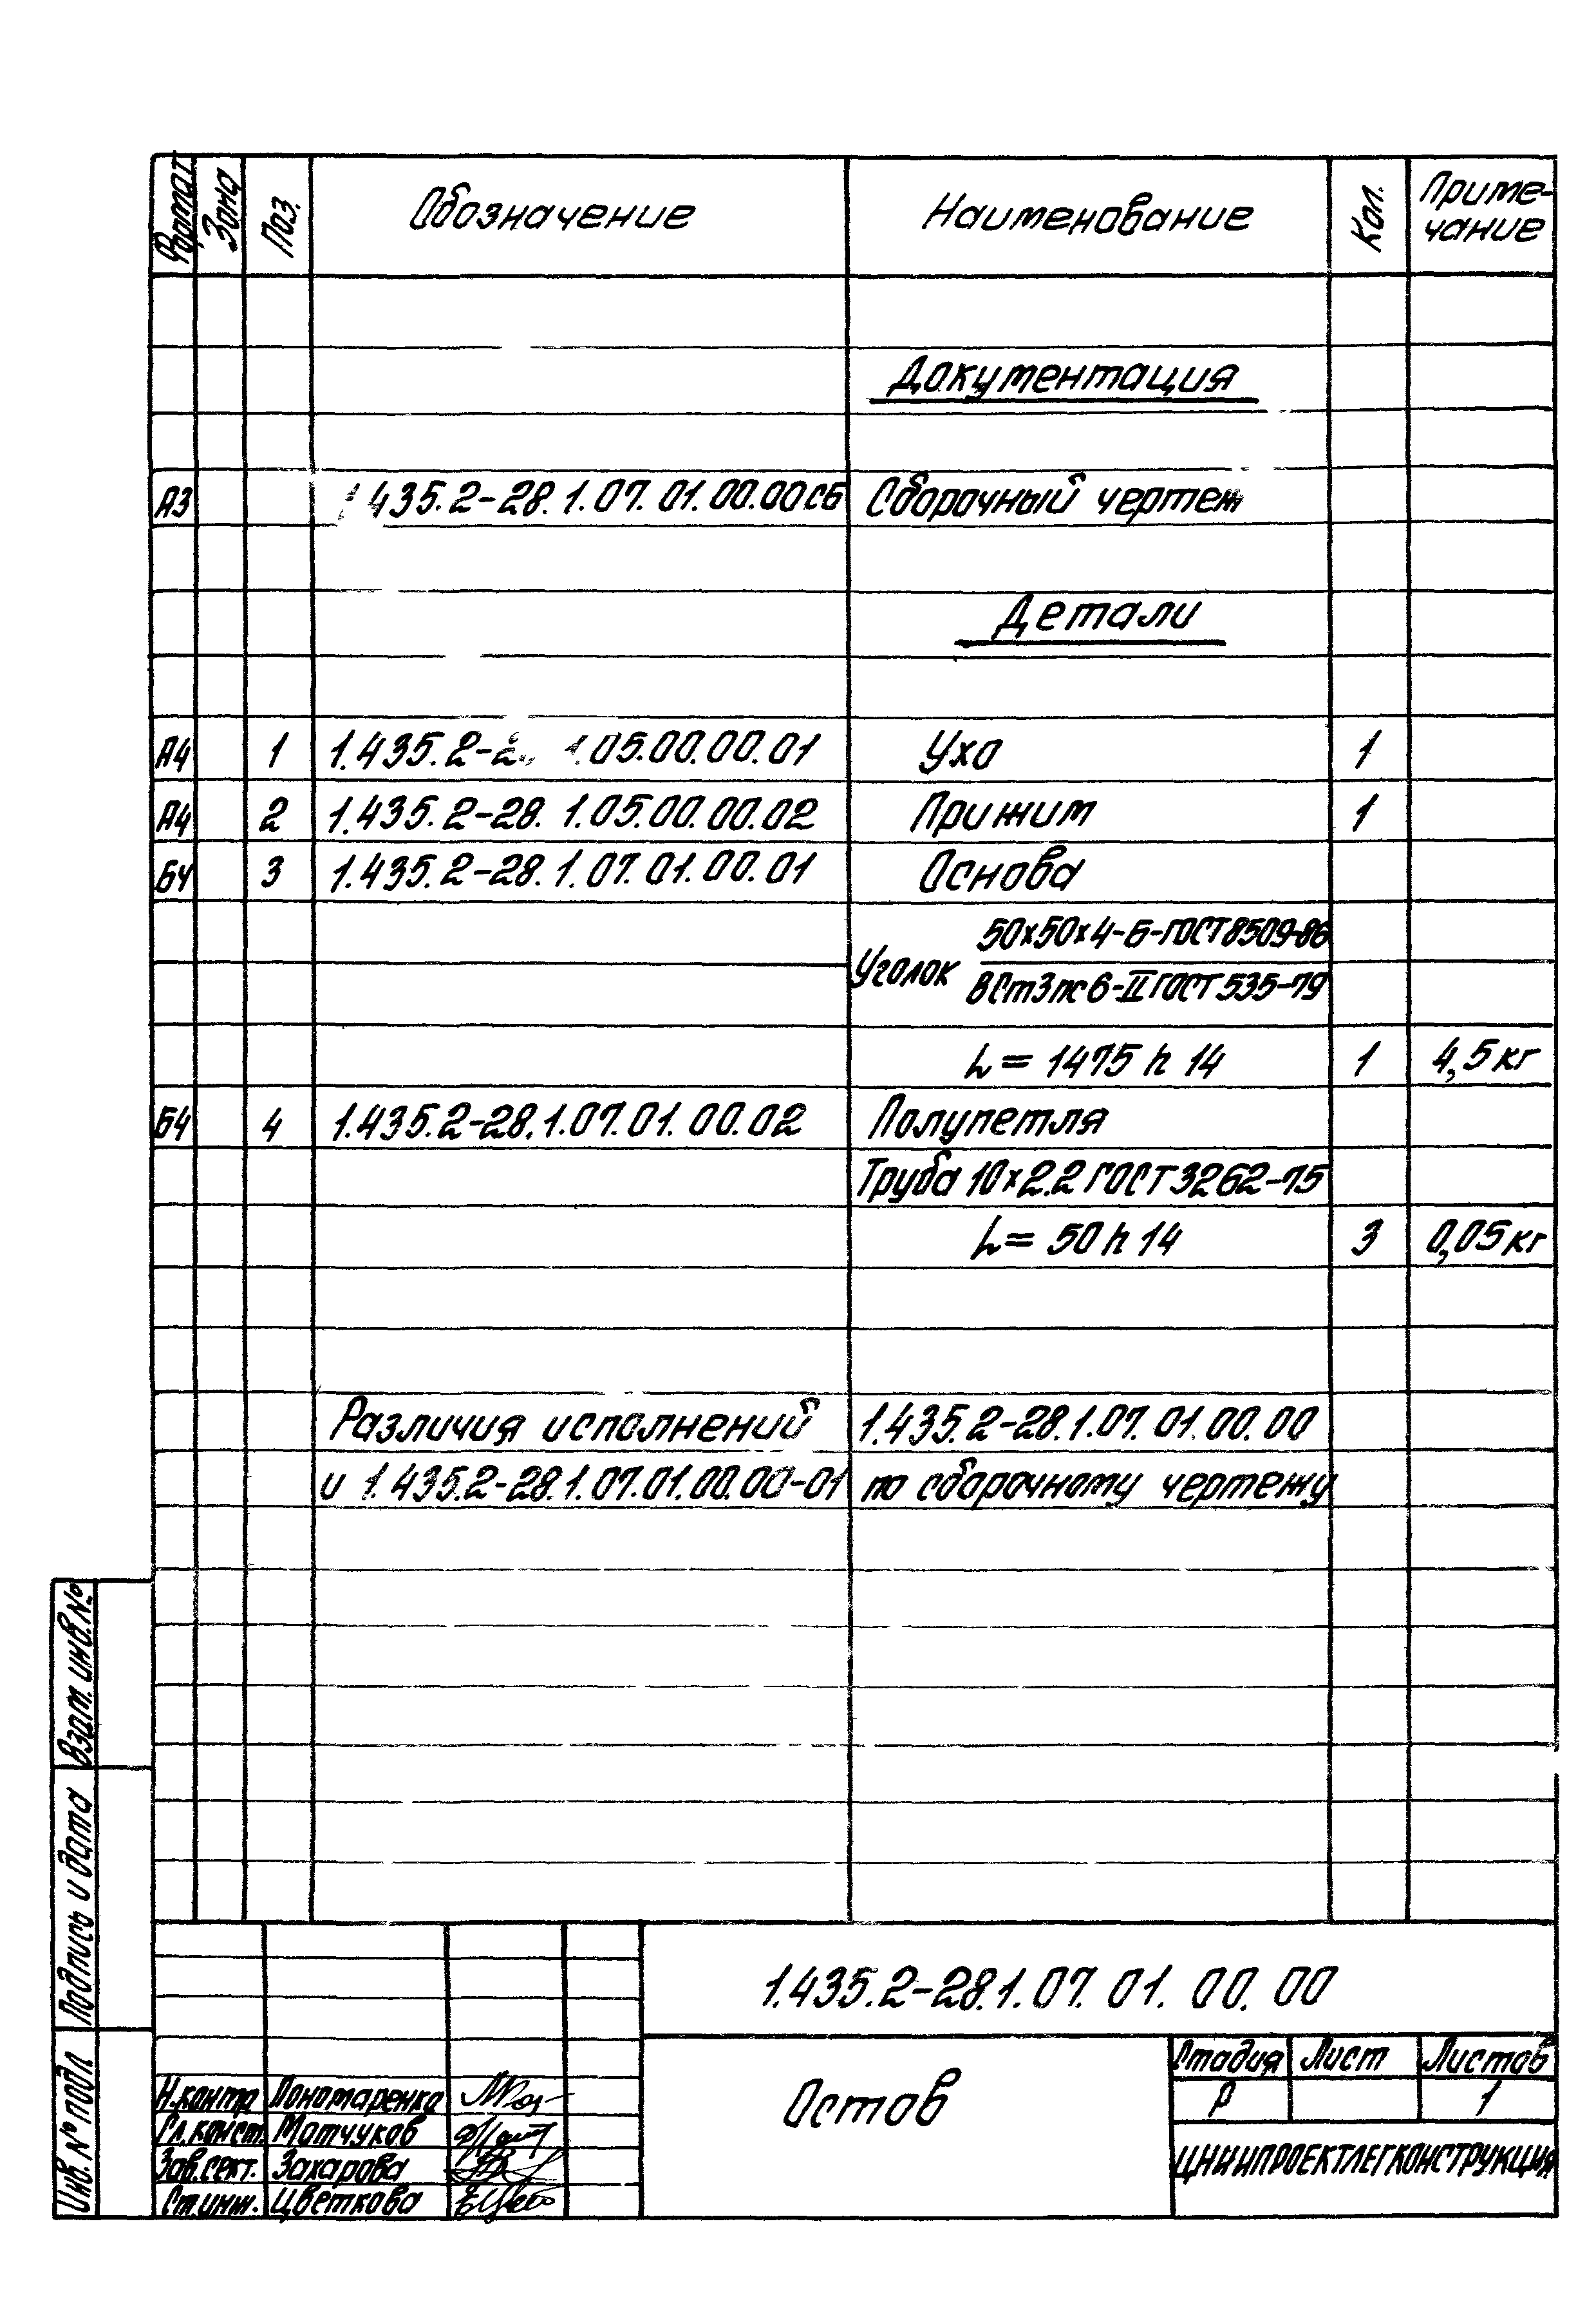 Формат Зона Поз. Обозначение Наименование Кол. Приме-
чание
Документация
А3 1.435.2-28.1.07.01.00.00СБ Сборочный чертеж
Детали
А4 1 1.435.2-28.1.05.00.00.01 Ухо 1
А4 2 1.435.2-28.1.05.00.00.02 Прижим 1
БЧ 3 1.435.2-28.1.07.01.00.01 Основа
50х50х4-Б-ГОСТ8509-86
Уголок
ВСт3пс6-II ГОСТ 535-79
L = 1475 h 14 1 4,5 кг
БЧ 4 1.435.2-28.1.07.01.00.02 Полупетля
Труба 10х2.2 ГОСТ 3262-75
L = 50 h 14 3 0,05 кг
Различия исполнений 1.435.2-28.1.07.01.00.00
и 1.435.2-28.1.07.01.00.00-01 по сборочному чертежу
Взам. инв. №
Подпись и дата
Инв. № подл
1.435.2-28.1.07.01.00.00
Остов
Стадия Лист Листов
Р 1
Н.контр Пономаренко
Гл.конст. Матчуков
Зав.сект. Захарова
Ст.инж. Цветкова
ЦНИИПРОЕКТЛЕГКОНСТРУКЦИЯ